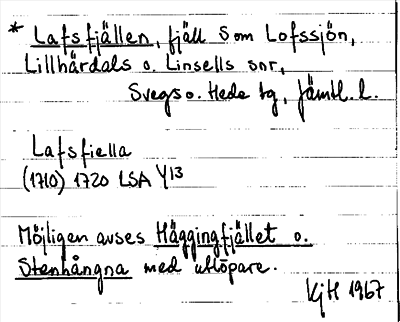 * Lafsfjällen, fjäll som Lofssjön,
Lillhärdals o. Linsells snr,
Svegs o. Hede tg, Jämtl. l.
Lafsfiella
(1710) 1720 LSA Y13
Möjligen avses Häggingfjället o.
Stenhångna med utlöpare.
KjH 1967